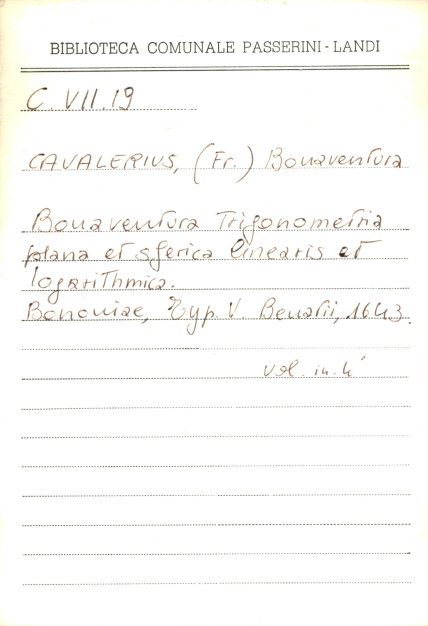 BIBLIOTECA COMUNALE PASSERINI - LANDI
C. VII. 19
CAVALERIUS, (Fr.) Bonaventura
Bonaventura Trigonometria
plana et sferica linearis et
logarithmica.
Bononiae, Typ. V. Benatii, 1643.
vol. in. 4°